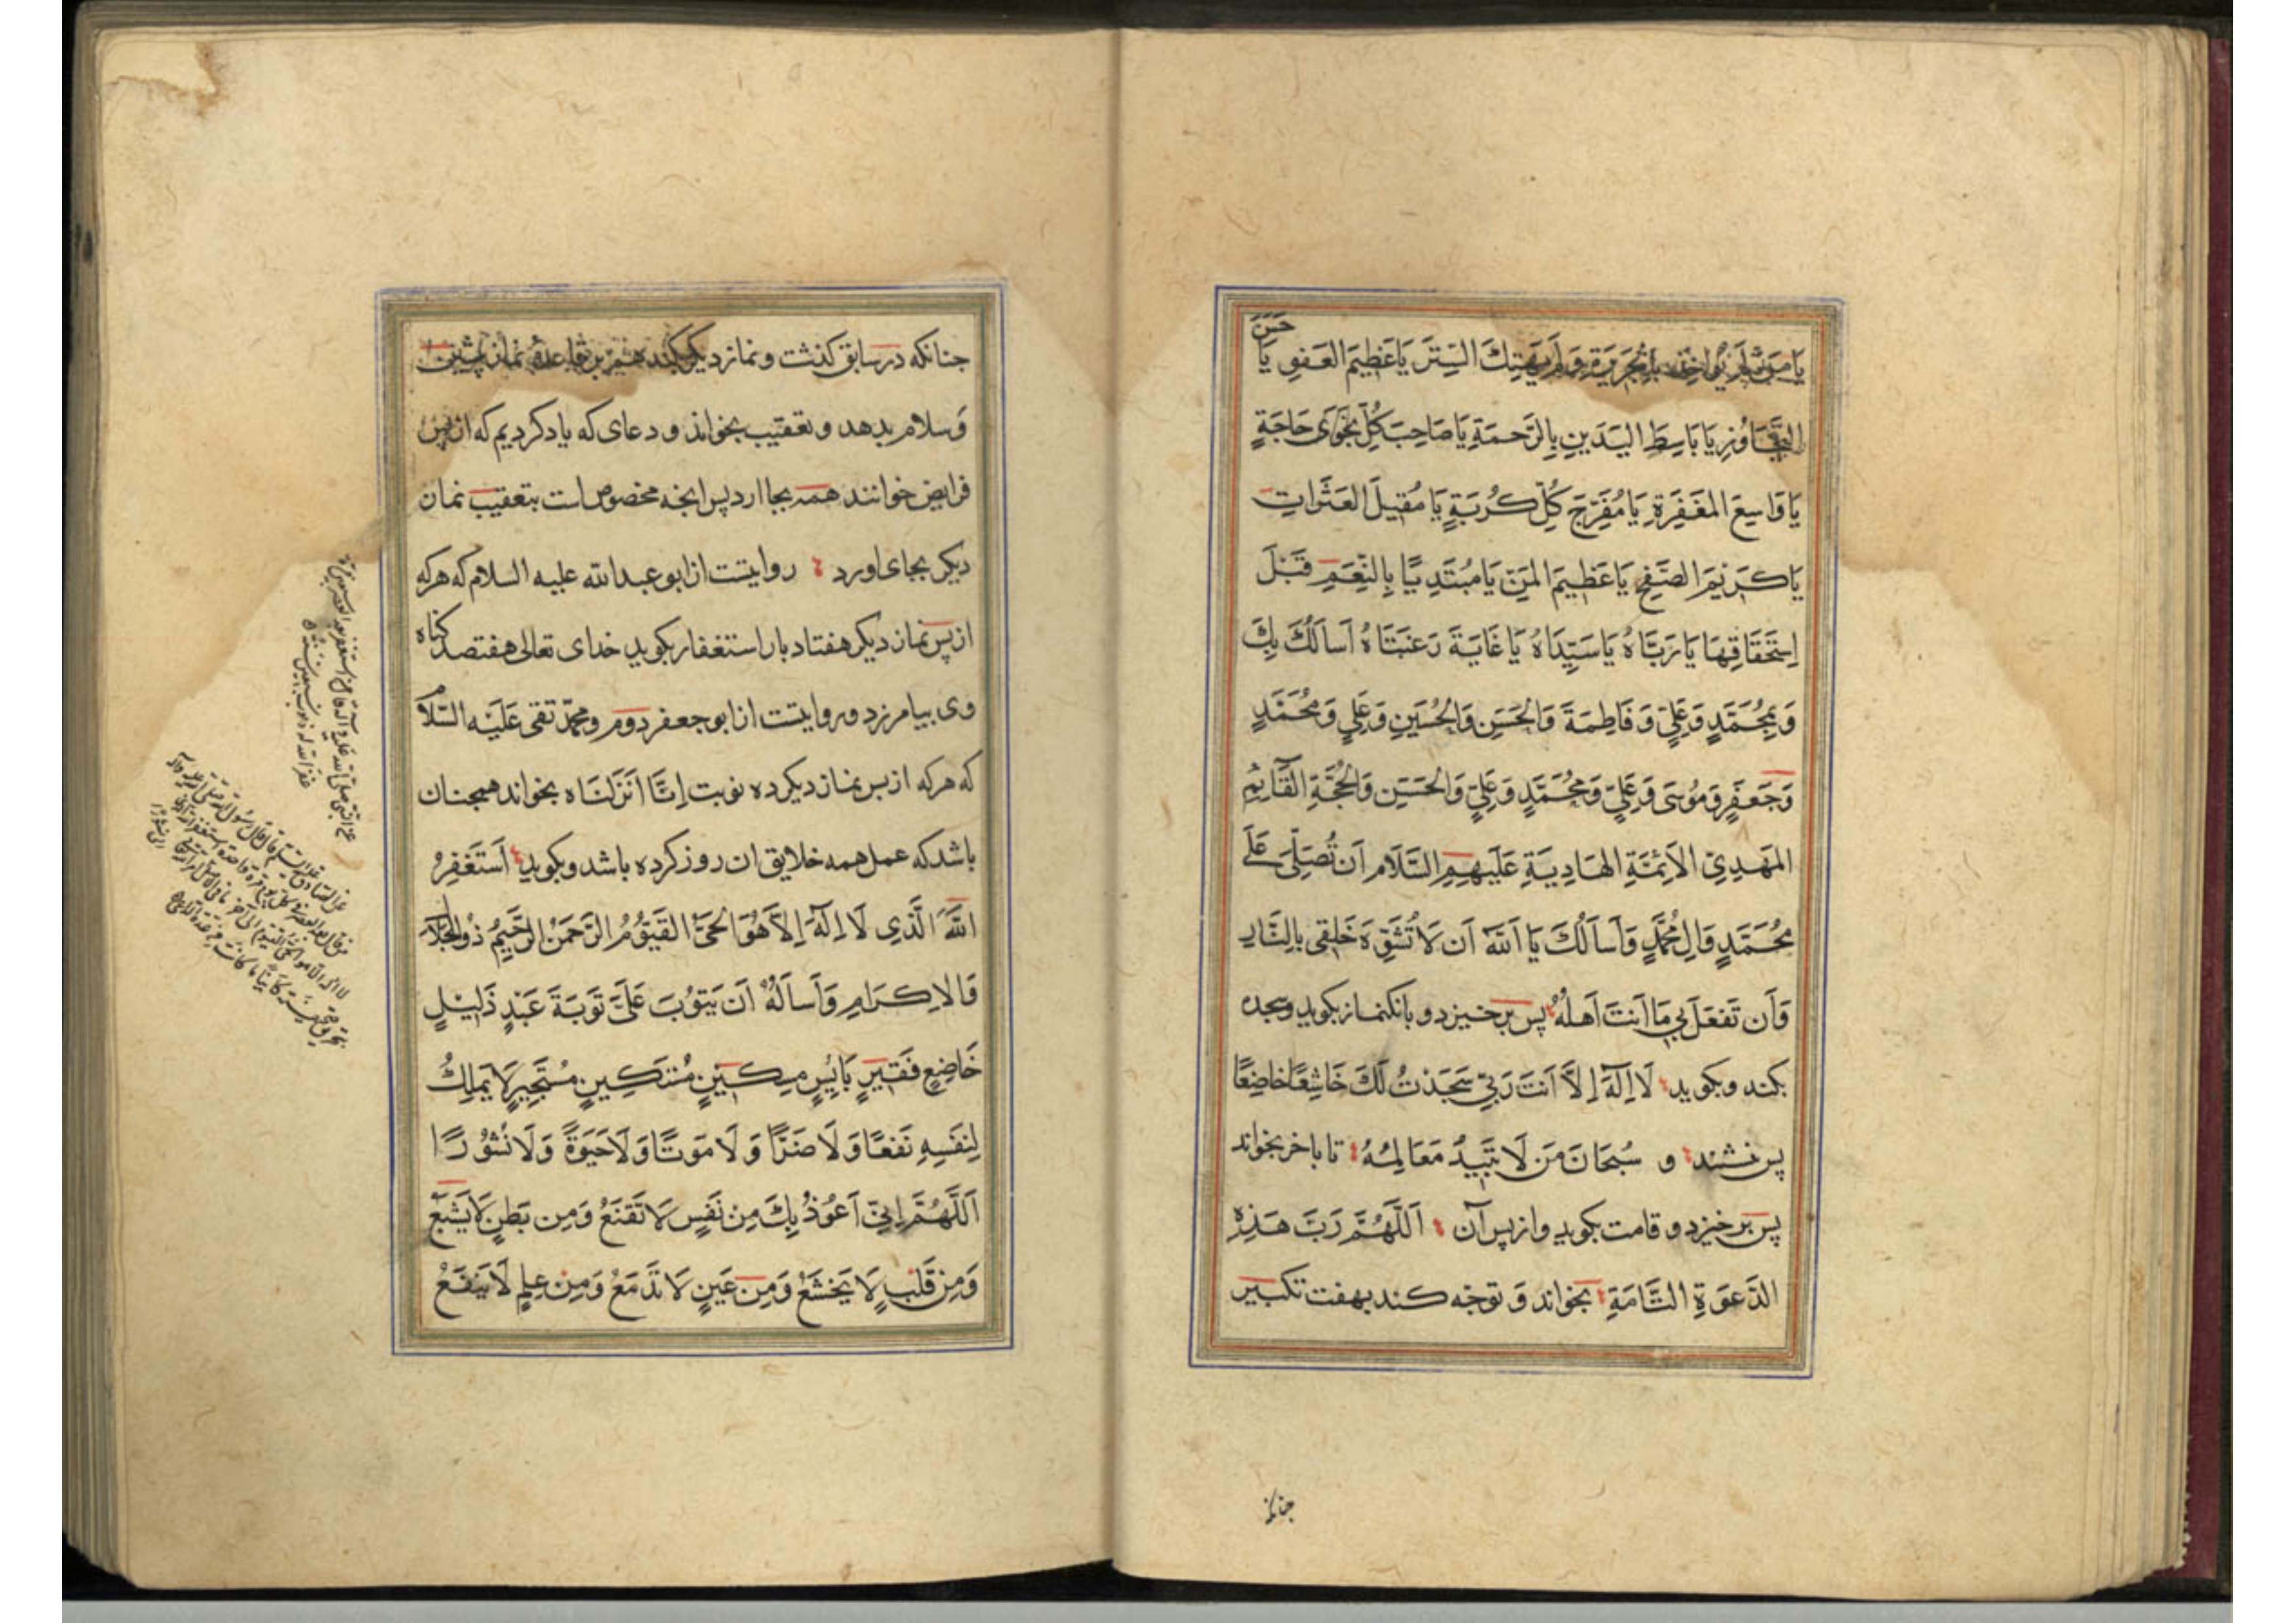 يَا مَنْ لَمْ يُؤَاخِذْ بِالْجَرِيرَةِ وَلَمْ يَهْتِكِ السِّتْرَ يَا عَظِيمَ العَفْوِ يَا حَسَنَ
التَّجَاوُزِ يَا بَاسِطَ اليَدَينِ بِالرَّحمَةِ يَا صَاحِبَ كُلِّ نَجْوَى حَاجَةٍ
يَا وَاسِعَ المَغفِرَةِ يَا مُفَرِّجَ كُلِّ كُربَةٍ يَا مُقِيلَ العَثَراتِ
يَا كَرِيمَ الصَّفحِ يَا عَظِيمَ المَنِّ يَا مُبتَدِيًا بِالنِّعَمِ قَبلَ
اِستِحقَاقِهَا يَا رَبَّاهُ يَا سَيِّدَاهُ يَا غَايَةَ رَغبَتَاهُ اَسأَلُكَ بِكَ
وَبِمُحَمَّدٍ وَعَلِيٍّ وَفَاطِمَةَ وَالحَسَنِ وَالحُسَينِ وَعَلِيٍّ وَمُحَمَّدٍ
وَجَعفَرٍ وَمُوسَى وَعَلِيٍّ وَمُحَمَّدٍ وَعَلِيٍّ وَالحَسَنِ وَالحُجَّةِ القَآئِمِ
المَهدِيِّ الاَئِمَّةِ الهَادِيَةِ عَلَيهِمِ السَّلَام اَن تُصَلِّىَ عَلَى
مُحَمَّدٍ وَالِ مُحَمَّدٍ وَاَسأَلُكَ يَا اَللّٰهُ اَن لَا تُشَوِّهَ خَلقِى بِالنَّارِ
وَاَن تَفعَلَ بِي مَا اَنتَ اَهلُهُ پس برخيزد و بانكنماز بكويد وسجده
بكند و بكويد لَا اِلَهَ اِلَّا اَنتَ رَبِّي سَجَدتُ لَكَ خَاشِعًا خَاضِعًا
پس نشيند و سُبحَانَ مَن لَا تَبِيدُ مَعَالِمُهُ تا باخر بخواند
پس برخيزد و قامت بكويد و از پس آن اَللَّهُمَّ رَبَّ هَذِهِ
الدَّعوَةِ التَّامَةِ بخواند وَ توجّه كند بهفت تكبير
جنانكه
جنانكه در سابق كذشت و نماز ديكر بكند هم بر قاعدهٔ نماز پيشين
وَسلام بدهد و تعقيب بخواند و دعاى كه ياد كرديم كه از پس
فرايض خوانند همه بجا ارد پس انجه مخصوص است بتعقيب نماز
ديكر بجاى اورد روايتست از ابو عبد الله عليه السلام كه هركه
از پس نماز ديكر هفتاد بار استغفار بكويد خداى تعالى هفتصد كناه
وى بيامرزد و روايتست از ابو جعفر دوم و محمّد تقى عَلَيهِ السَّلَام
كه هركه از پس نماز ديكر ده نوبت اِنَّا اَنزَلنَاه بخواند همجنان
باشد كه عمل همه خلايق ان روز كرده باشد و بكويد اَستَغفِرُ
اللّٰهَ الَّذِى لَا اِلَهَ اِلَّا هُوَ الحَىُّ القَيُّومُ الرَّحمَنُ الرَّحِيمُ ذُو الجَلَالِ
وَالاِكرَامِ وَاَسأَلُهُ اَن يَتُوبَ عَلَىَّ تَوبَةَ عَبدٍ ذَلِيلٍ
خَاضِعٍ فَقِيرٍ بَائِسٍ مِسكِينٍ مُستَكِينٍ مُستَجِيرٍ لَا يَملِكُ
لِنَفسِهِ نَفعًا وَلَا ضَرًّا وَلَا مَوتًا وَلَا حَيوَةً وَلَا نُشُورًا
اَللَّهُمَّ اِنِّى اَعُوذُ بِكَ مِن نَفسٍ لَا تَقنَعُ وَمِن بَطنٍ لَا يَشبَعُ
وَمِن قَلبٍ لَا يَخشَعُ وَمِن عَينٍ لَا تَدمَعُ وَمِن عِلمٍ لَا يَنفَعُ